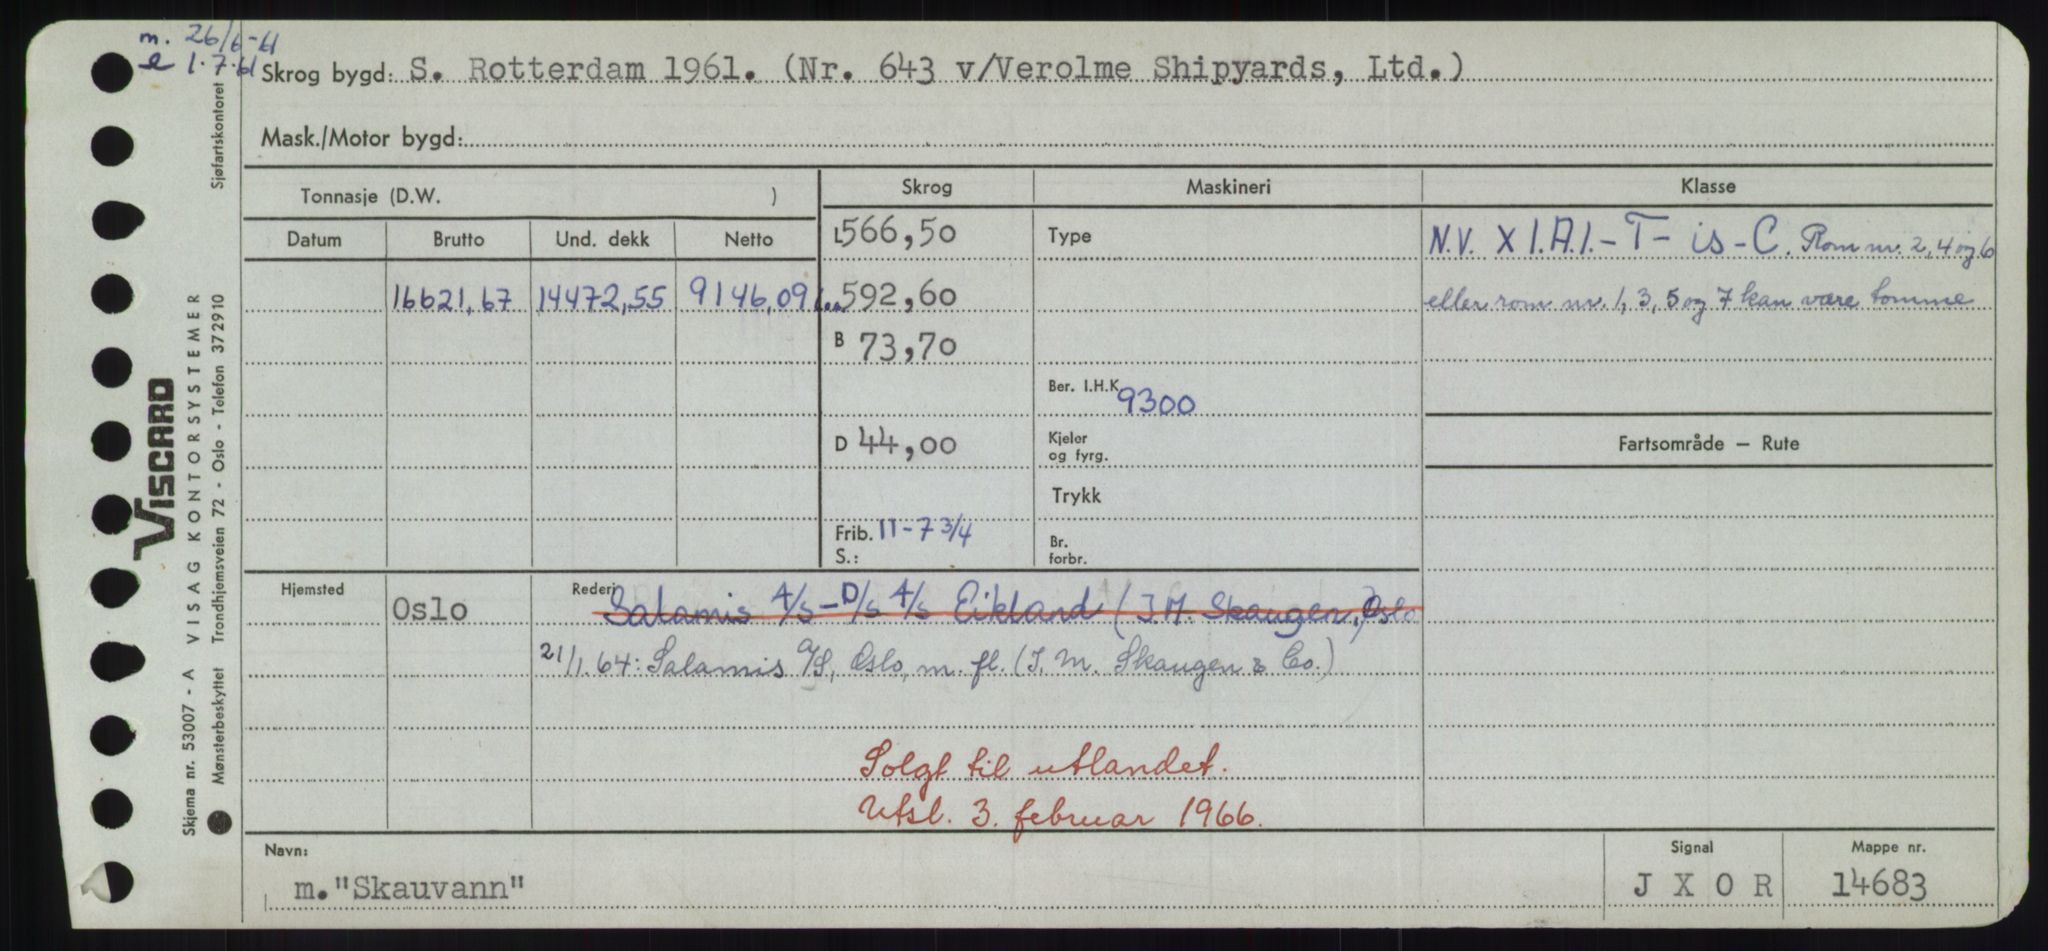 m. 26/6-61
e 1.7.61
Skrog bygd: S. Rotterdam 1961. (Nr. 643 v/Verolme Shipyards, Ltd.)
Mask./Motor bygd:
Tonnasje (D.W. )
Skrog
Maskineri
Klasse
Datum
Brutto
Und. dekk
Netto
16621,67
14472,55
9146,09
L 566,50
592,60
B 73,70
D 44,00
Frib. 11-7 3/4
S.:
Type
Ber. I.H.K. 9300
Kjeler og fyrg.
Trykk
Br. forbr.
N.V. X I.A.I. - T - is - C. Rom nr. 2, 4 og 6
eller rom nr. 1, 3, 5 og 7 kan være tomme
Fartsområde — Rute
Hjemsted
Oslo
Rederi
Salamis A/S - D/S A/S Eikland (I.M. Skaugen,) Oslo
21/1.64: Salamis A/S, Oslo, m. fl. (I. M. Skaugen & Co.)
Solgt til utlandet.
Utsl. 3. februar 1966.
Navn:
m. "Skauvann"
Signal
J X O R
Mappe nr.
14683
Skjema nr. 53007 - A VISAG KONTORSYSTEMER
Viscard
Mønsterbeskyttet Trondhjemsveien 72 - Oslo - Telefon 37 29 10
Sjøfartskontoret